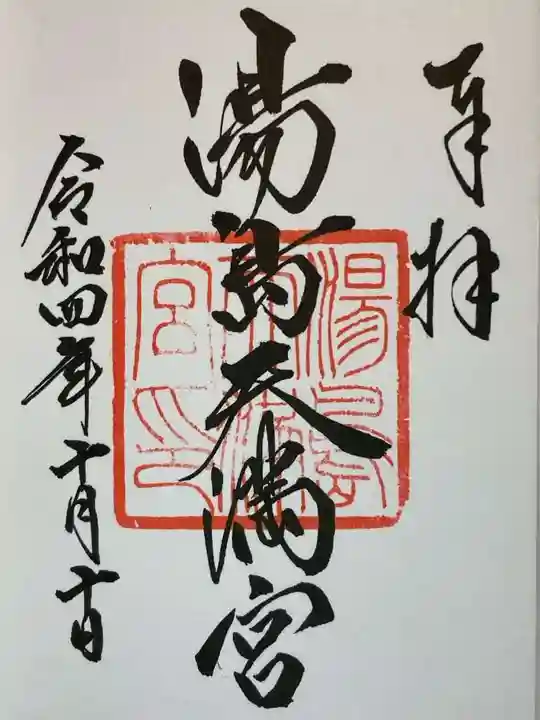 奉拝
湯島天満宮
湯島天満宮印
令和四年十月十日